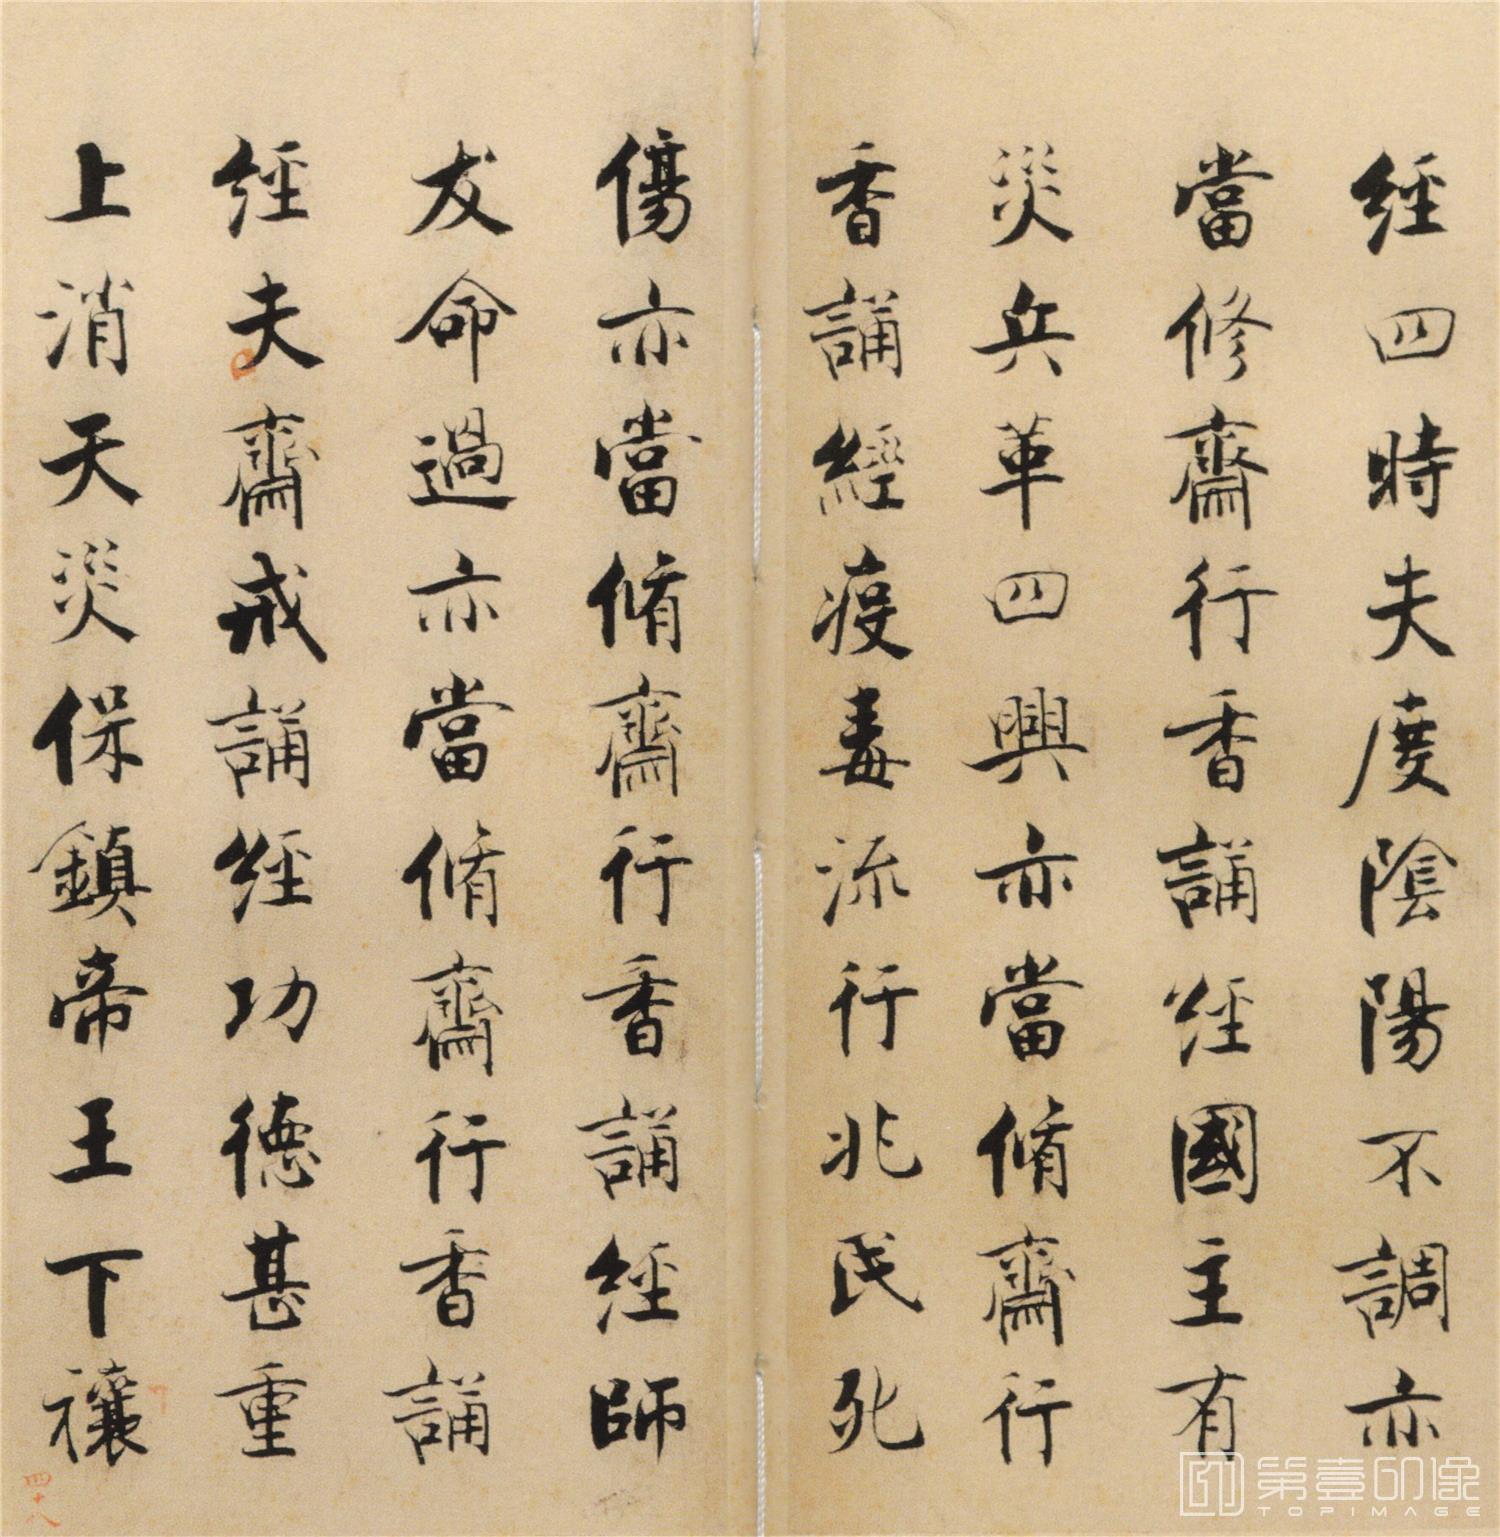 經四時夫度陰陽不調亦
當修齋行香誦經國主有
災兵革四興亦當脩齋行
香誦經疫毒流行兆民死
傷亦當脩齋行香誦經師
友命過亦當脩齋行香誦
經夫齋戒誦經功德甚重
上消天災保鎮帝王下禳
四十八
第壹印像
TOPIMAGE